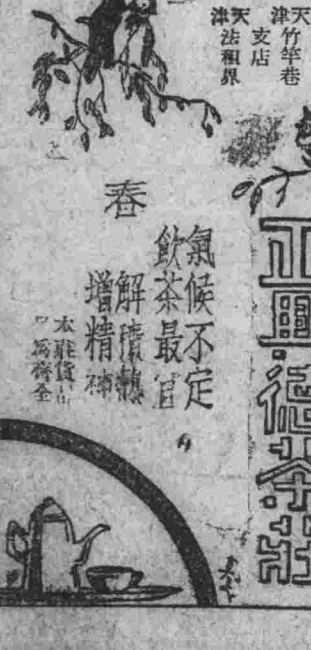 天津竹竿巷
支店
天津法租界
正興德茶莊
春
氣候不定
飲茶最宜
解積熱
增精神